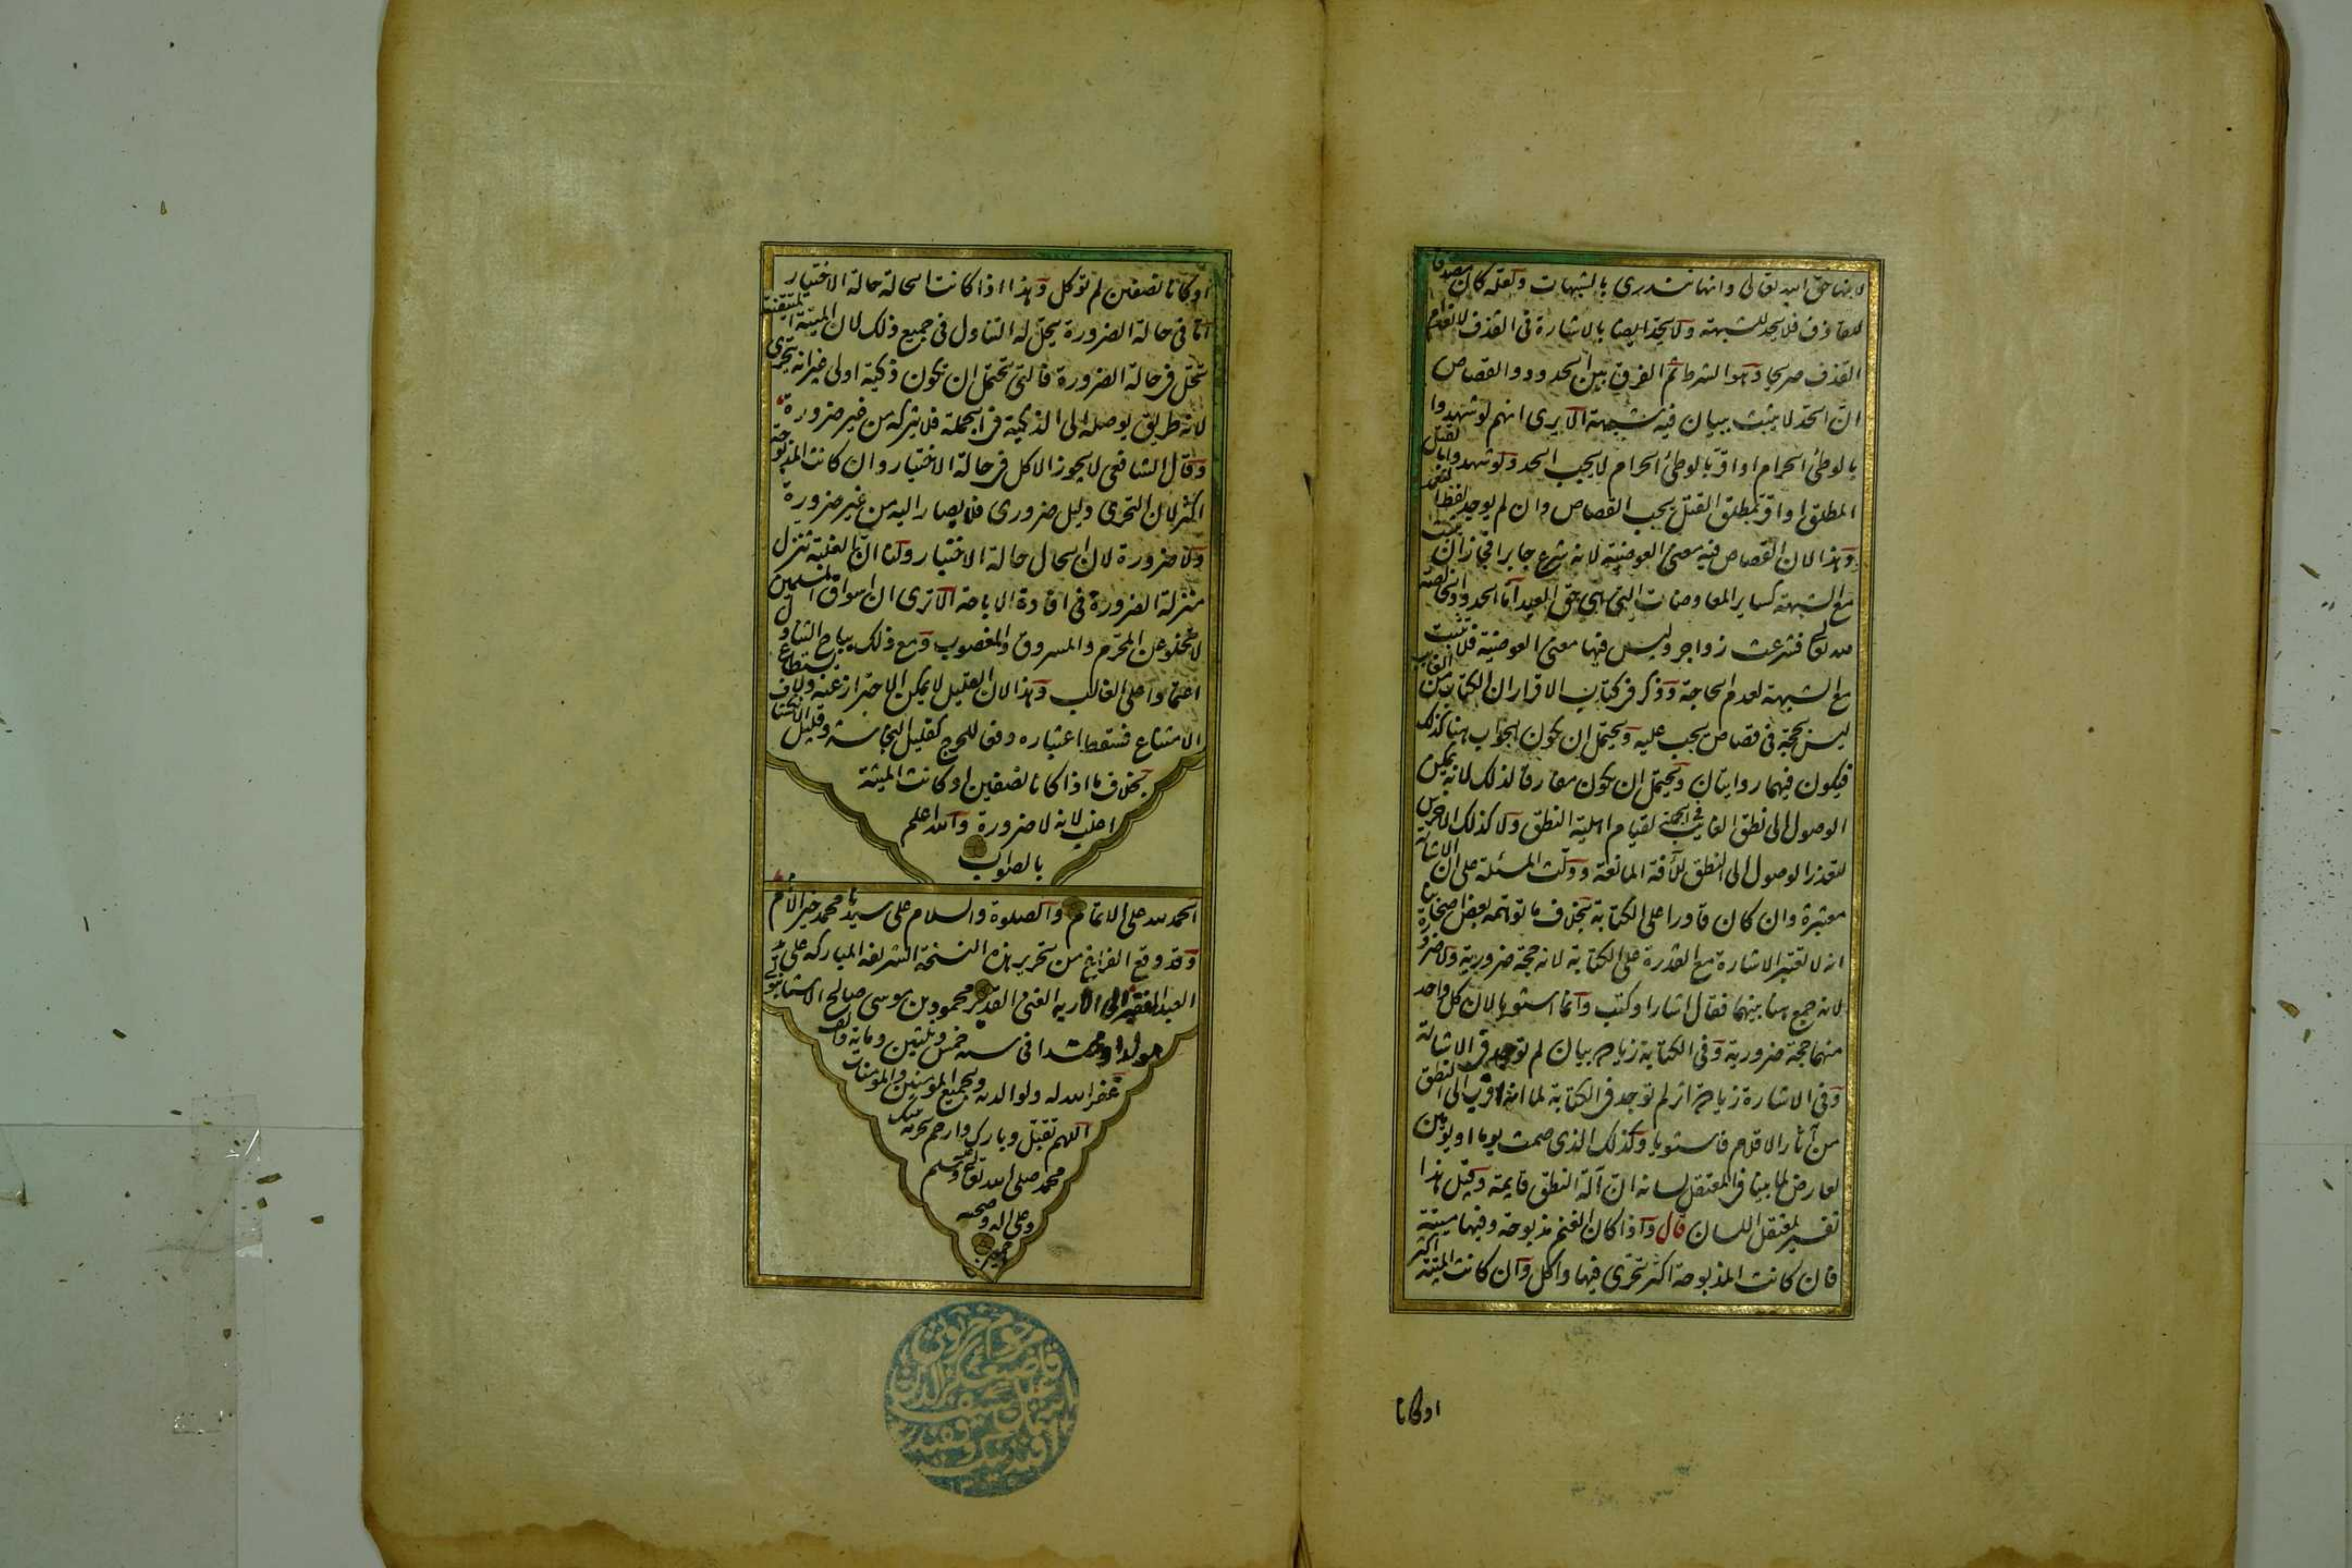 لانها حق الله تعالى وانها تندرى بالشبهات ولعله كان مصدقا
للقاذف فلا يحد للشبهة ولا يحد ايضا بالاشارة فى القذف لانعدام
القذف صريحا وهو الشرط ثم الفرق بين الحدود والقصاص
ان الحد لا يثبت ببيان فيه شبهة الا يرى انهم لو شهدوا
بالوطئ الحرام او اقر بالوطئ الحرام لا يجب الحد ولو شهدوا بالقتل
المطلق او اقر بمطلق القتل يجب القصاص وان لم يوجد لفظ التعمد
وهذا لان القصاص فيه معنى العوضية لانه شرع جابرا فجاز ان يثبت
مع الشبهة كساير المعاوضات التى هى حق العبد اما الحدود الخالصة
لله تعالى فشرعت زواجر وليس فيها معنى العوضية فلا تثبت
مع الشبهة لعدم الحاجة وذكر فى كتاب الاقرار ان الكتاب من الغايب
ليس بحجة فى قصاص يجب عليه ويحتمل ان يكون الجواب هنا كذلك
فيكون فيهما روايتان ويحتمل ان يكون مفارقا لذلك لانه يمكن
الوصول الى نطق الغايب فى الجملة لقيام اهلية النطق ولا كذلك الاخرس
لتعذر الوصول الى النطق للآفة المانعة ودلت المسئلة على ان الاشارة
معتبرة وان كان قادرا على الكتابة بخلاف ما توهمه بعض اصحابنا
انه لا تعتبر الاشارة مع القدرة على الكتابة لانه حجة ضرورية ولا ضرورة
لانه جمع هنا بينهما فقال اشار او كتب وانما استويا لان كل واحد
منهما حجة ضرورية وفى الكتابة زيادة بيان لم توجد فى الاشارة
وفى الاشارة زيادة اثر لم توجد فى الكتابة لما انه اقرب الى النطق
من آثار الاقلام فاستويا وكذلك الذى صمت يوما او يومين
لعارض لما بينا فى المعتقل لسانه ان آلة النطق قايمة وقيل هذا
تفسير لمعتقل اللسان قال واذا كان الغنم مذبوحة وفيها ميتة
فان كانت المذبوحة اكثر تحرى فيها واكل وان كانت الميتة اكثر
او كانا
او كانا نصفين لم توكل وهذا اذا كانت الحالة حالة الاختيار
اما فى حالة الضرورة يحل له التناول فى جميع ذلك لان الميتة المتيقنة
تحل فى حالة الضرورة فالتى تحتمل ان تكون ذكية اولى غير انه يتحرى
لانه طريق يوصله الى الذكية فى الجملة فلا يتركه من غير ضرورة
وقال الشافعى لا يجوز الاكل فى حالة الاختيار وان كانت المذبوحة
اكثر لان التحرى دليل ضرورى فلا يصار اليه من غير ضرورة
ولا ضرورة لان الحال حالة الاختيار ولنا ان الغلبة تنزل
منزلة الضرورة فى افادة الاباحة الا ترى ان اسواق المسلمين
لا تخلو عن المحرم والمسروق والمغصوب ومع ذلك يباح التناول
اعتمادا على الغالب وهذا لان القليل لا يمكن الاحتراز عنه ولا يستطاع
الامتناع فسقط اعتباره دفعا للحرج كقليل النجاسة وقليل الانكشاف
بخلاف ما اذا كانا نصفين او كانت الميتة
اغلب لانه لا ضرورة والله اعلم
بالصواب
الحمد لله على الاتمام والصلوة والسلام على سيدنا محمد خير الانام
وقد وقع الفراغ من تحرير هذه النسخة الشريفة المباركة على يد
العبد الفقير الى الغنى القدير محمود بن موسى صالح
مولدا فى سنه خمس وثلثين ومايه والف
غفر الله له ولوالديه ولجميع المؤمنين والمؤمنات
اللهم تقبل وبارك وارحم بحرمة نبيك
محمد صلى الله تعالى عليه وسلم
وعلى اله وصحبه
اجمعين